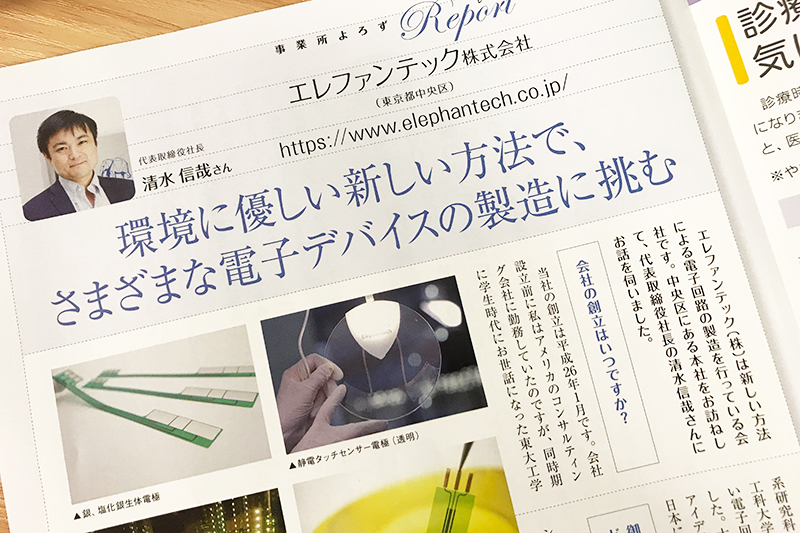 事業所よろず
Report
エレファンテック株式会社
（東京都中央区）
https://www.elephantech.co.jp/
代表取締役社長
清水 信哉さん
環境に優しい新しい方法で、
さまざまな電子デバイスの製造に挑む
エレファンテック（株）は新しい方法
による電子回路の製造を行っている会
社です。中央区にある本社をお訪ねし
て、代表取締役社長の清水信哉さんに
お話を伺いました。
会社の創立はいつですか？
当社の創立は平成26年1月です。会社
設立前に私はアメリカのコンサルティン
グ会社に勤務していたのですが、同時期
に学生時代にお世話になった東大工学
▲静電タッチセンサー電極（透明）
▲銀、塩化銀生体電極
系研究科
工科大学
い電子回
した。
アイデ
日本に
診療
気に
診療時
になりま
と、医
※や